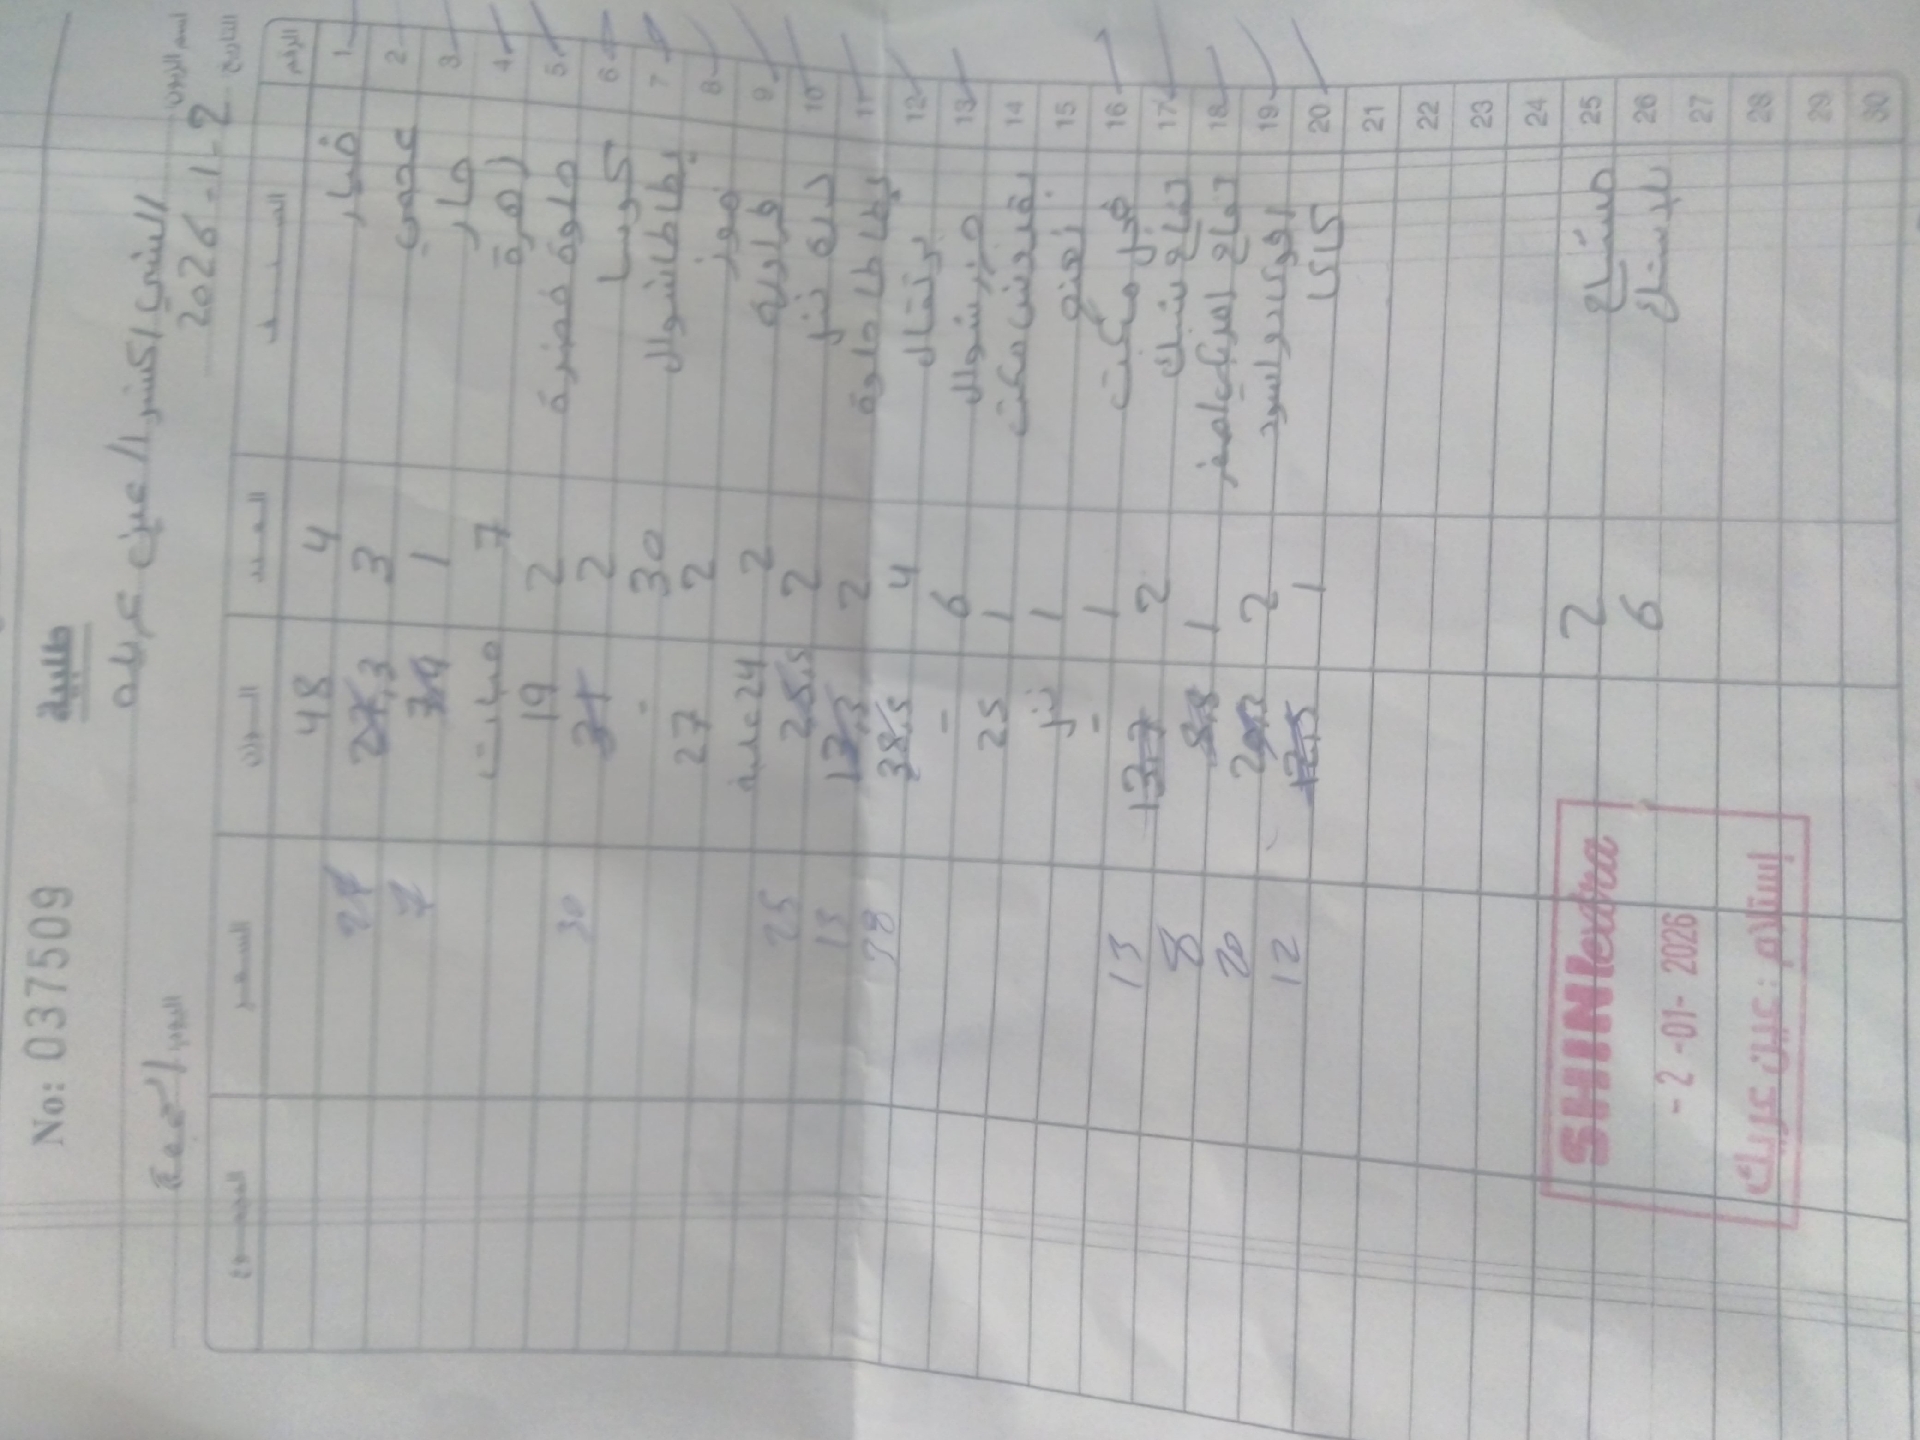 طلبية
No: 037509
اسم الزبون الشني اكسترا / عين عريك
التاريخ 2026-1-2 اليوم الجمعة
الرقم الصنف العدد الوزن السعر المجموع
1 خيار 4 48
2 عجمي 3 27,3 27
3 حار 1 7,9 7
4 زهرة 7 حبات
5 حلوة خضرة 2 19
6 كوسا 2 31 30
7 بطاطا شوال 30 -
8 موز 2 27
9 فراولة 2 24 علبة
10 درة نزل 2 25,5 25
11 بطاطا حلوة 2 13,3 13
12 برتقال 4 38,5 38
13 جزر شوال 6 -
14 بقدونس مكت 1 25
15 نعنع 1 نزل
16 فجل مكيت 1 -
17 تفاح سكري 2 13,7 13
18 تفاح امريكي احمر 1 8,8 8
19 افوكادو اسود 2 20,2 20
20 كاكا 1 12,5 12
21
22
23
24
25 مشتاح 2
26 بلاستيك 6
27
28
29
30
SHINI extra
- 2 -01- 2026
إستلام : عين عريك